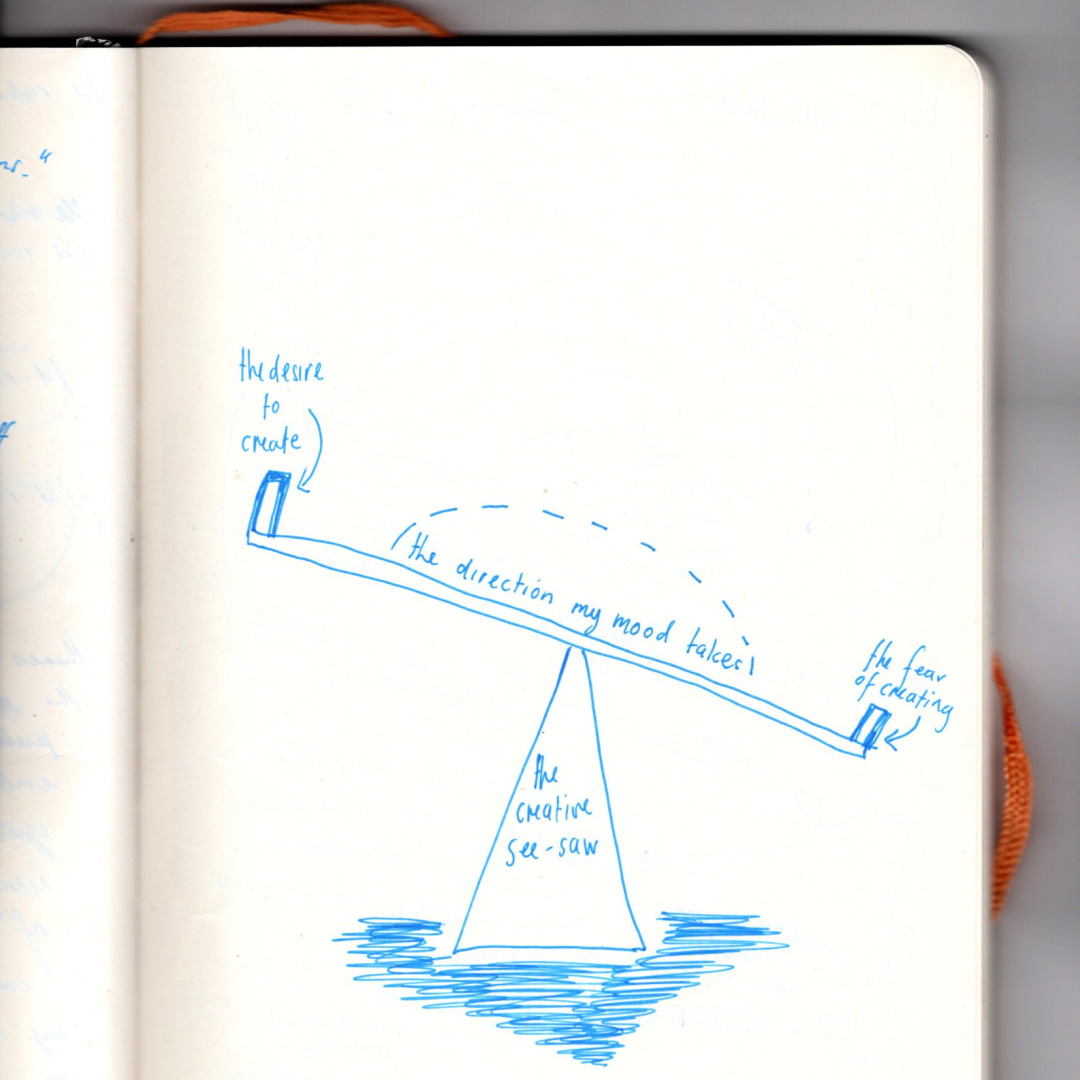 the desire
to
create
the direction my mood takes!
the fear
of creating
the
creative
see-saw